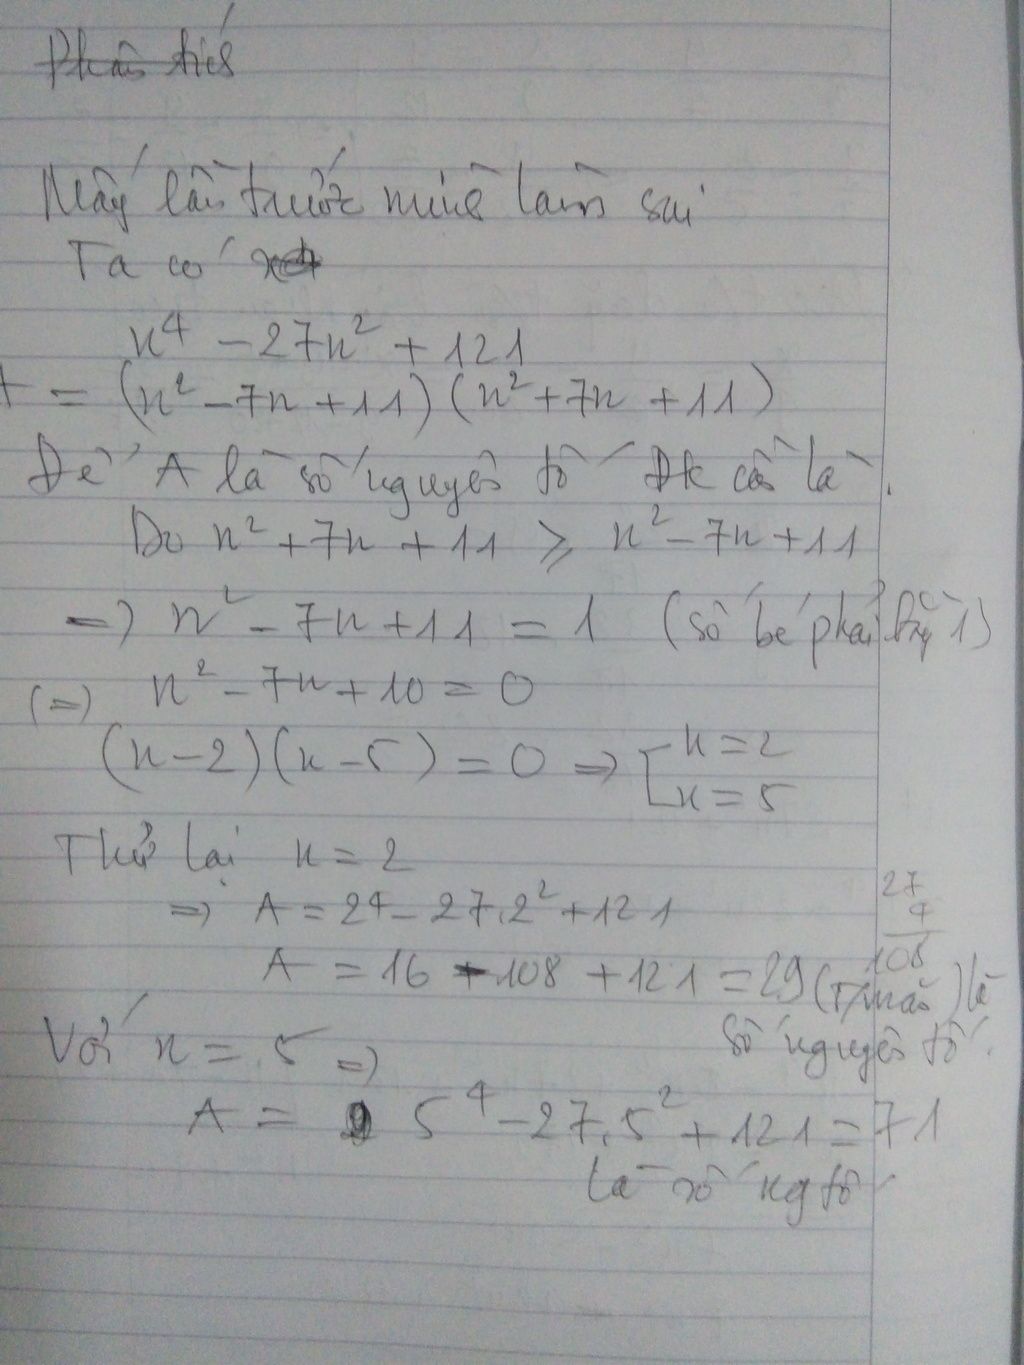 Phân tích
Mấy lần trước mình làm sai
Ta có
n⁴ - 27n² + 121
= (n² - 7n + 11)(n² + 7n + 11)
Để A là số nguyên tố Đk cần là
Do n² + 7n + 11 ⩾ n² - 7n + 11
=> n² - 7n + 11 = 1 (số bé phải bằng 1)
(=) n² - 7n + 10 = 0
(n - 2)(n - 5) = 0 => [ n = 2
n = 5
Thử lại n = 2
=> A = 2⁴ - 27.2² + 121
27
4
108
A = 16 - 108 + 121 = 29 (T/mãn) là
số nguyên tố.
Với n = 5 =>
A = 5⁴ - 27.5² + 121 = 71
là số ng tố